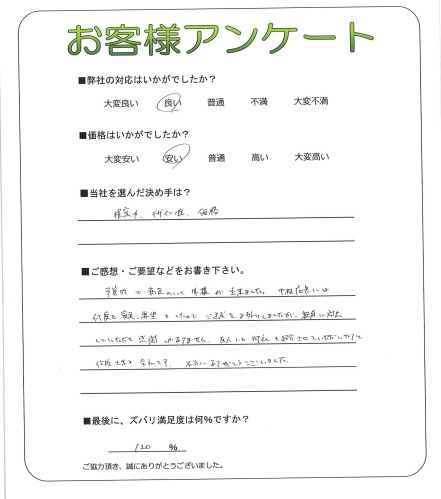 お客様アンケート
■弊社の対応はいかがでしたか?
大変良い 良い 普通 不満 大変不満
■価格はいかがでしたか?
大変安い 安い 普通 高い 大変高い
■当社を選んだ決め手は?
提案力、デザイン性、価格
■ご感想・ご要望などをお書き下さい。
予算内で満足のいく 出来ました。
何度も変更、要望 ご迷惑をお掛けしましたが、親身に対応
していただき感謝しかありません。友人にも御社を紹介させていただいた
本当にありがとうございました。
■最後に、ズバリ満足度は何%ですか?
120 %
ご協力頂き、誠にありがとうございました。